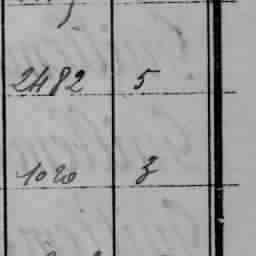 2482 5
1020 3